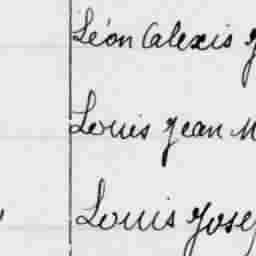 Léon Calexis
Louis Jean
Louis Jose